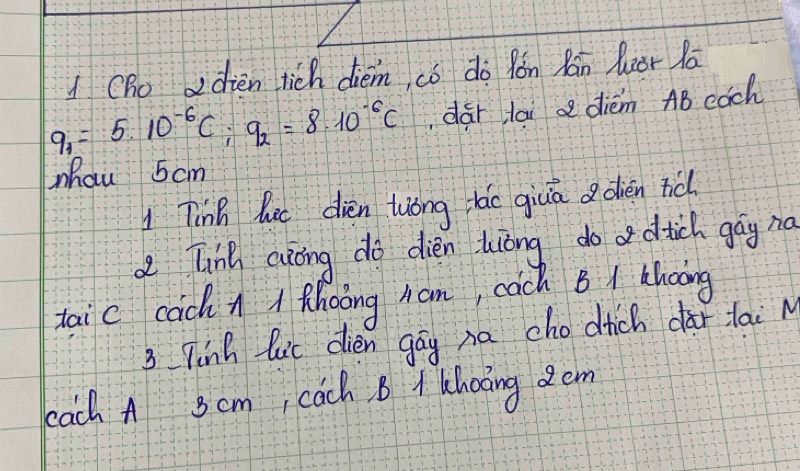 1 Cho 2 điện tích điểm, có độ lớn lần lượt là
q₁ = 5.10⁻⁶C ; q₂ = 8.10⁻⁶C , đặt tại 2 điểm AB cách
nhau 5cm
1 Tính lực điện tương tác giữa 2 điện tích
2 Tính cường độ điện trường do 2 đtích gây ra
tại C cách A 1 khoảng 4cm , cách B 1 khoảng
3_Tính lực điện gây ra cho đtích đặt tại M
cách A 3cm , cách B 1 khoảng 2cm